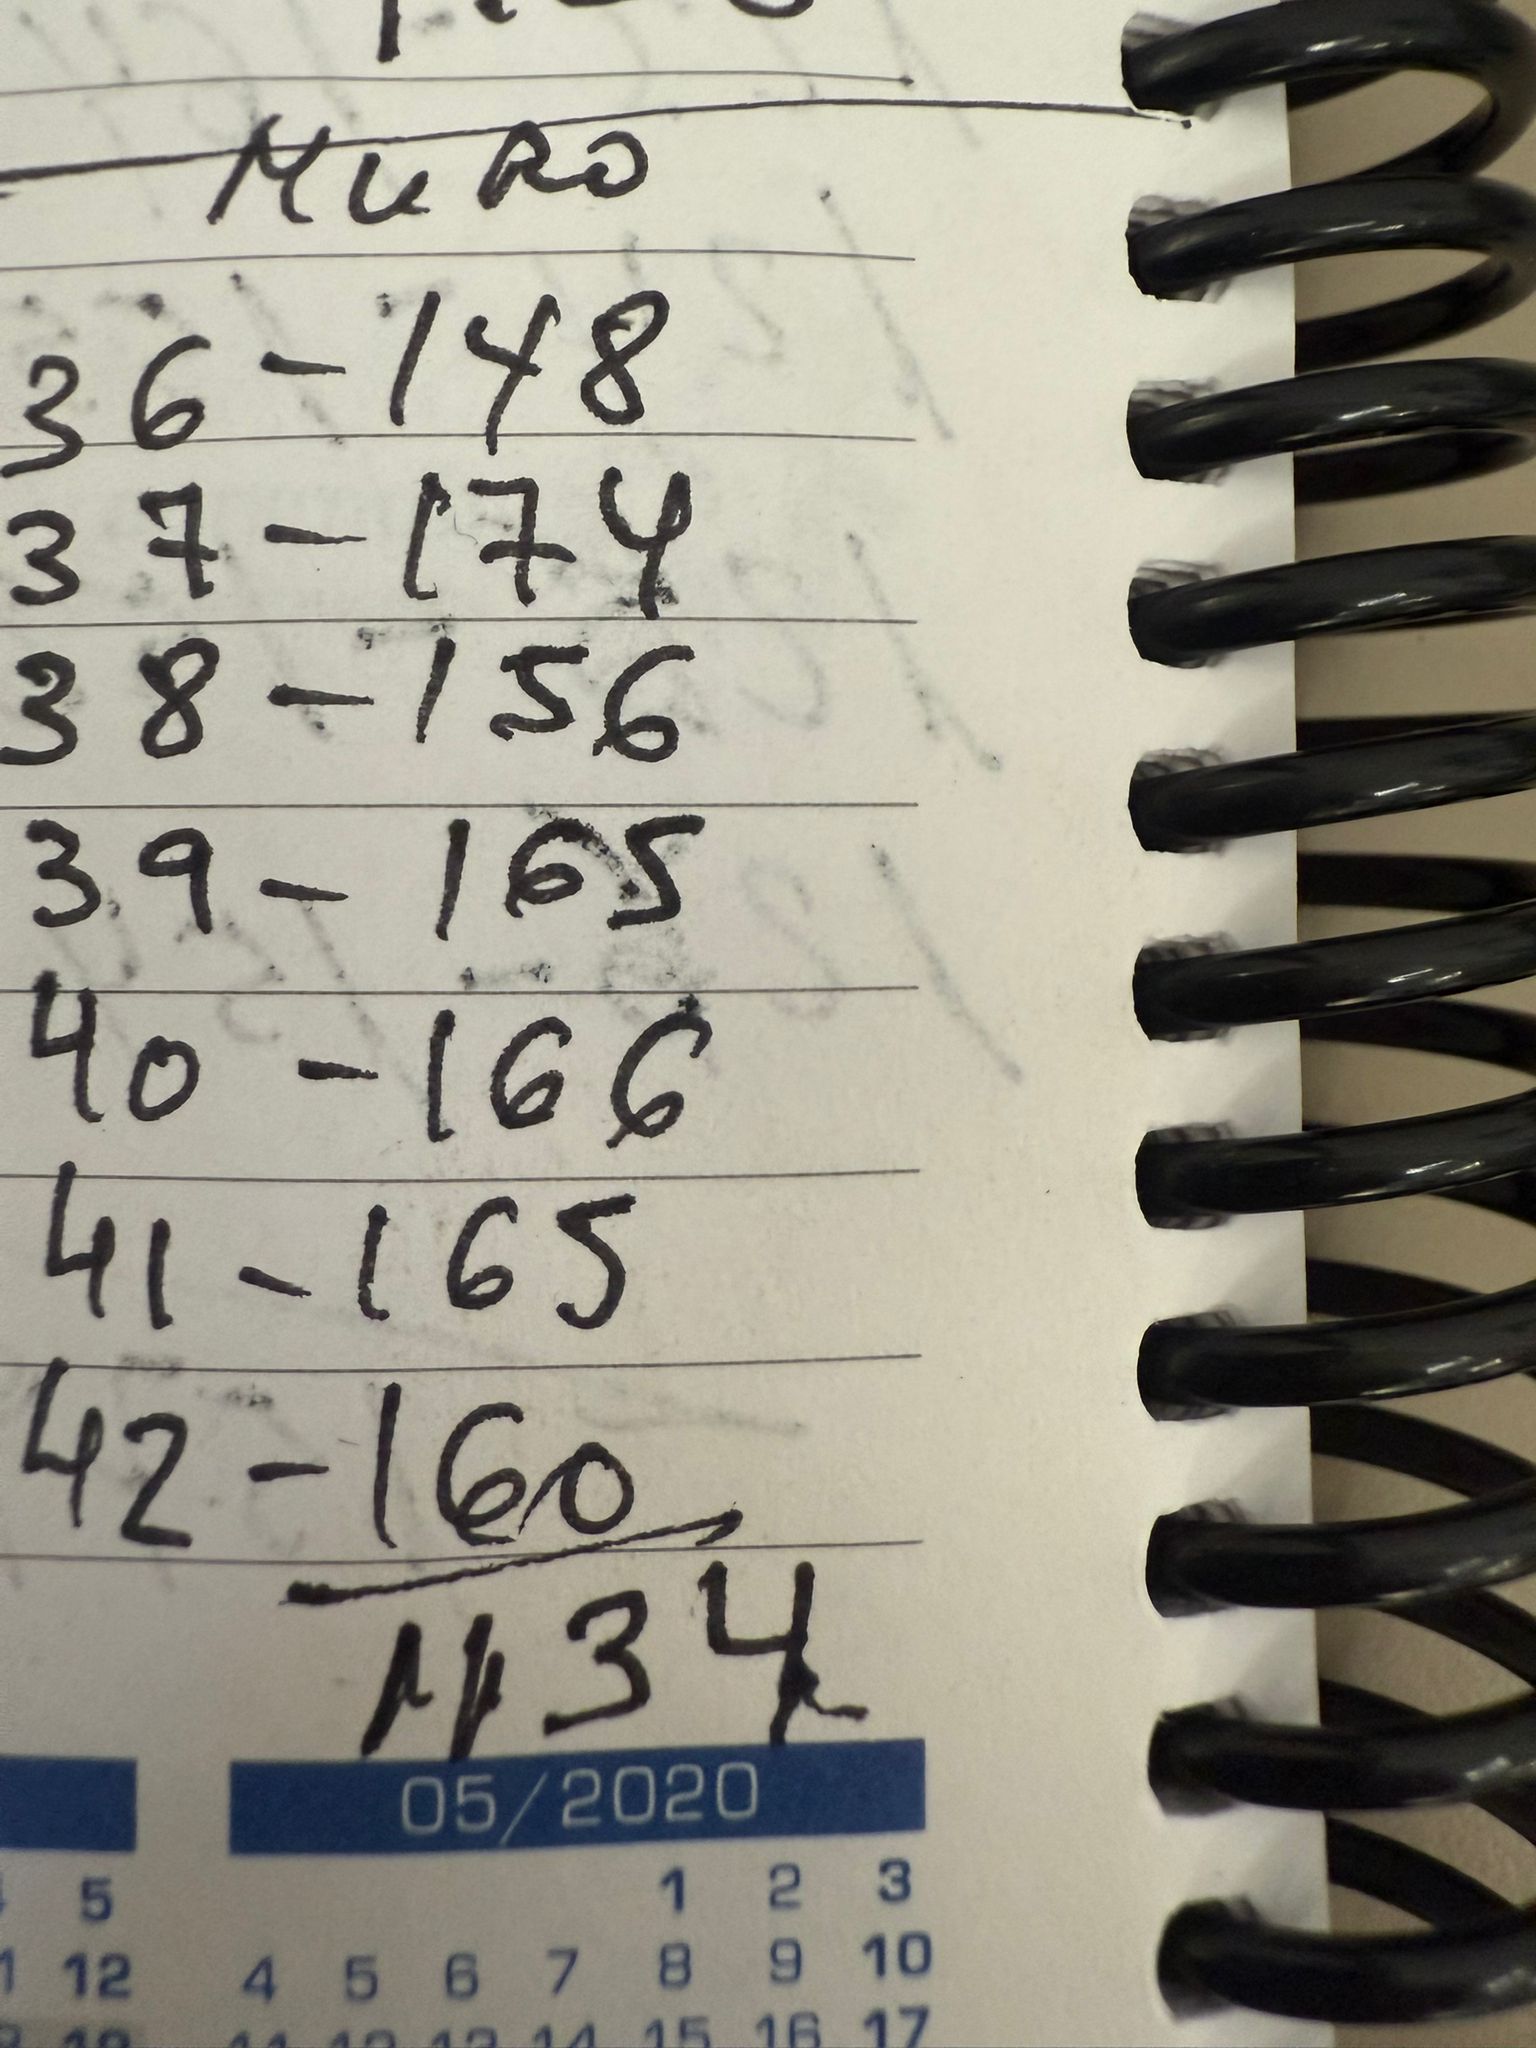 MURO
36 - 148
37 - 174
38 - 156
39 - 165
40 - 166
41 - 165
42 - 160
1134
05/2020
5 1 2 3
12 4 5 6 7 8 9 10
11 12 13 14 15 16 17